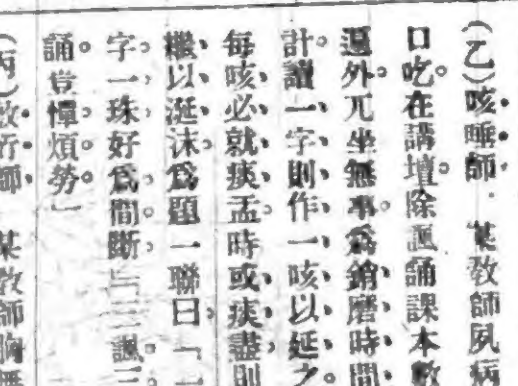 (乙)咳唾師．某教師夙病
口吃在講壇除諷誦課本數
遍外兀坐無事爲銷磨時間
計讀一字則作一咳以延之
每咳必就痰盂時或痰盡則
繼以涎沫爲題一聯曰「一
字一珠好爲間斷」「三諷三
誦豈憚煩勞」
(丙)教行師．某教師胸無